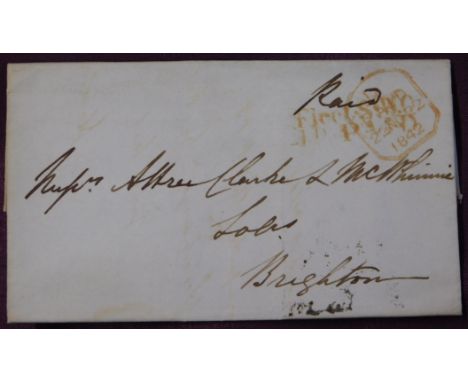 Paid
1842
Messrs Attree Clarke & McWhinnie
Solrs
Brighton